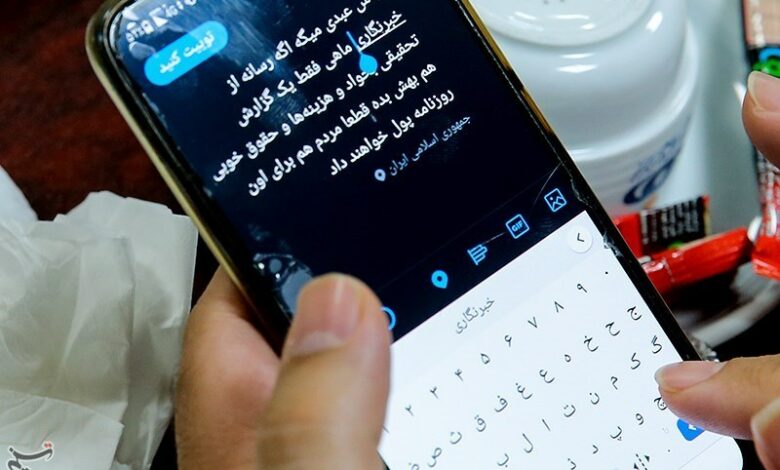 توییت کنید
عبدی میگه اگه رسانه از
خبرنگاری ماهی فقط یک گزارش
تحقیقی بخواد و هزینه‌ها و حقوق خوبی
هم بهش بده قطعا مردم هم برای اون
روزنامه پول خواهند داد
جمهوری اسلامی ایران
GIF
خبرنگاری
۱ ۲ ۳ ۴ ۵ ۶ ۷ ۸ ۹ ۰
ض ص ث ق ف غ ع ه خ ح ج
ی ب ل ا ت ن م ک گ
ز ر ذ د پ و چ